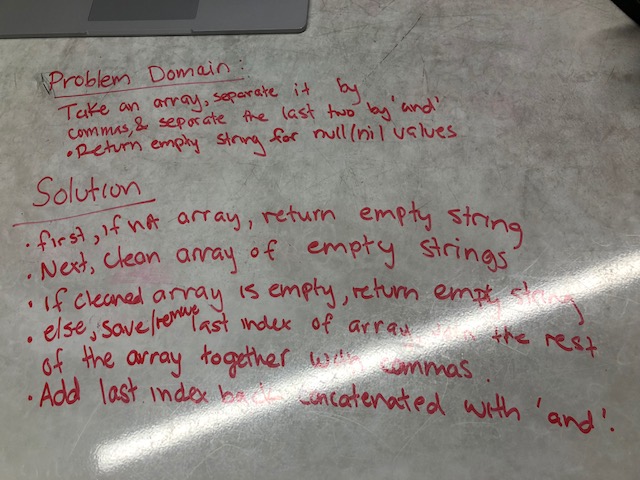 Problem Domain:
Take an array, separate it by
commas, & separate the last two by 'and'
• Return empty string for null/nil values
Solution
• first, if not array, return empty string
• Next, clean array of empty strings
• if cleaned array is empty, return empty string
• else, save/remove last index of array, the rest
of the array together with commas
• Add last index back concatenated with 'and'.